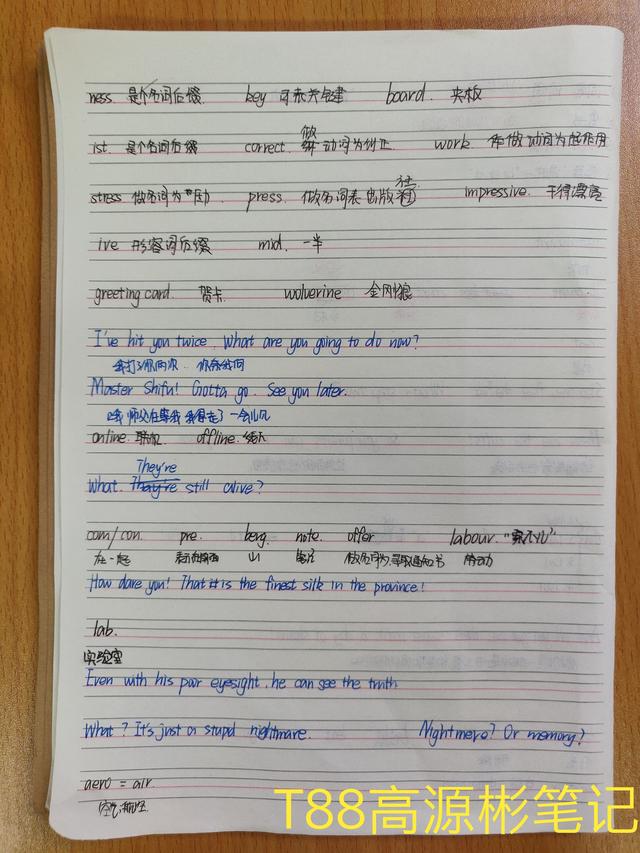 ness. 是个名词后缀. key 可表关键 board. 夹板
ist. 是个名词后缀 correct. 做动词为纠正 work 做动词为起作用
stress 做名词为压力. press. 做名词表出版社 impressive. 干得漂亮
ive 形容词后缀 mid. 一半
greeting card. 贺卡 wolverine 金刚狼
I've hit you twice. What are you going to do now?
我打了你两次
Master Shifu! Gotta go. See you later.
哦 师父在等我 我得走了 一会儿见
online. 联机 offline.
They're
What. They're still alive?
com/con. pre. berg. note. offer labour.
在一起 山 笔记 做名词为录取通知书 劳动
How dare you! That is the finest silk in the province!
lab.
实验室
Even with his poor eyesight, he can see the truth
What? It's just a stupid nightmare. Nightmere? Or memory?
aero = air.
空气
T88高源彬笔记